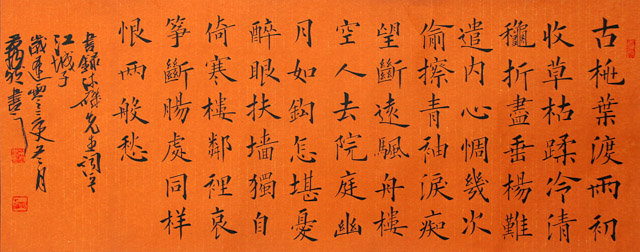 古桃葉渡雨初
收草枯蹂冷清
穐折盡垂楊難
遣内心惆幾次
偷擦青袖淚痴
望斷遠颿舟樓
空人去院庭幽
月如鈎怎堪憂
醉眼扶墙獨自
倚寒樓鄰裡哀
箏斷腸處同樣
恨兩般愁
書錄先生詞
江城子
歲逢零三年冬月
書